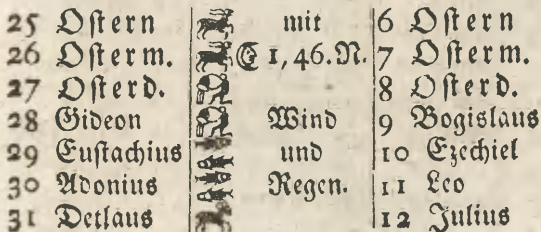 25 Oſtern mit 6 Oſtern
26 Oſterm. 1, 46. N. 7 Oſterm.
27 Oſterd. 8 Oſterd.
28 Gideon Wind 9 Bogislaus
29 Euſtachius und 10 Ezechiel
30 Adonius Regen. 11 Leo
31 Detlaus 12 Julius